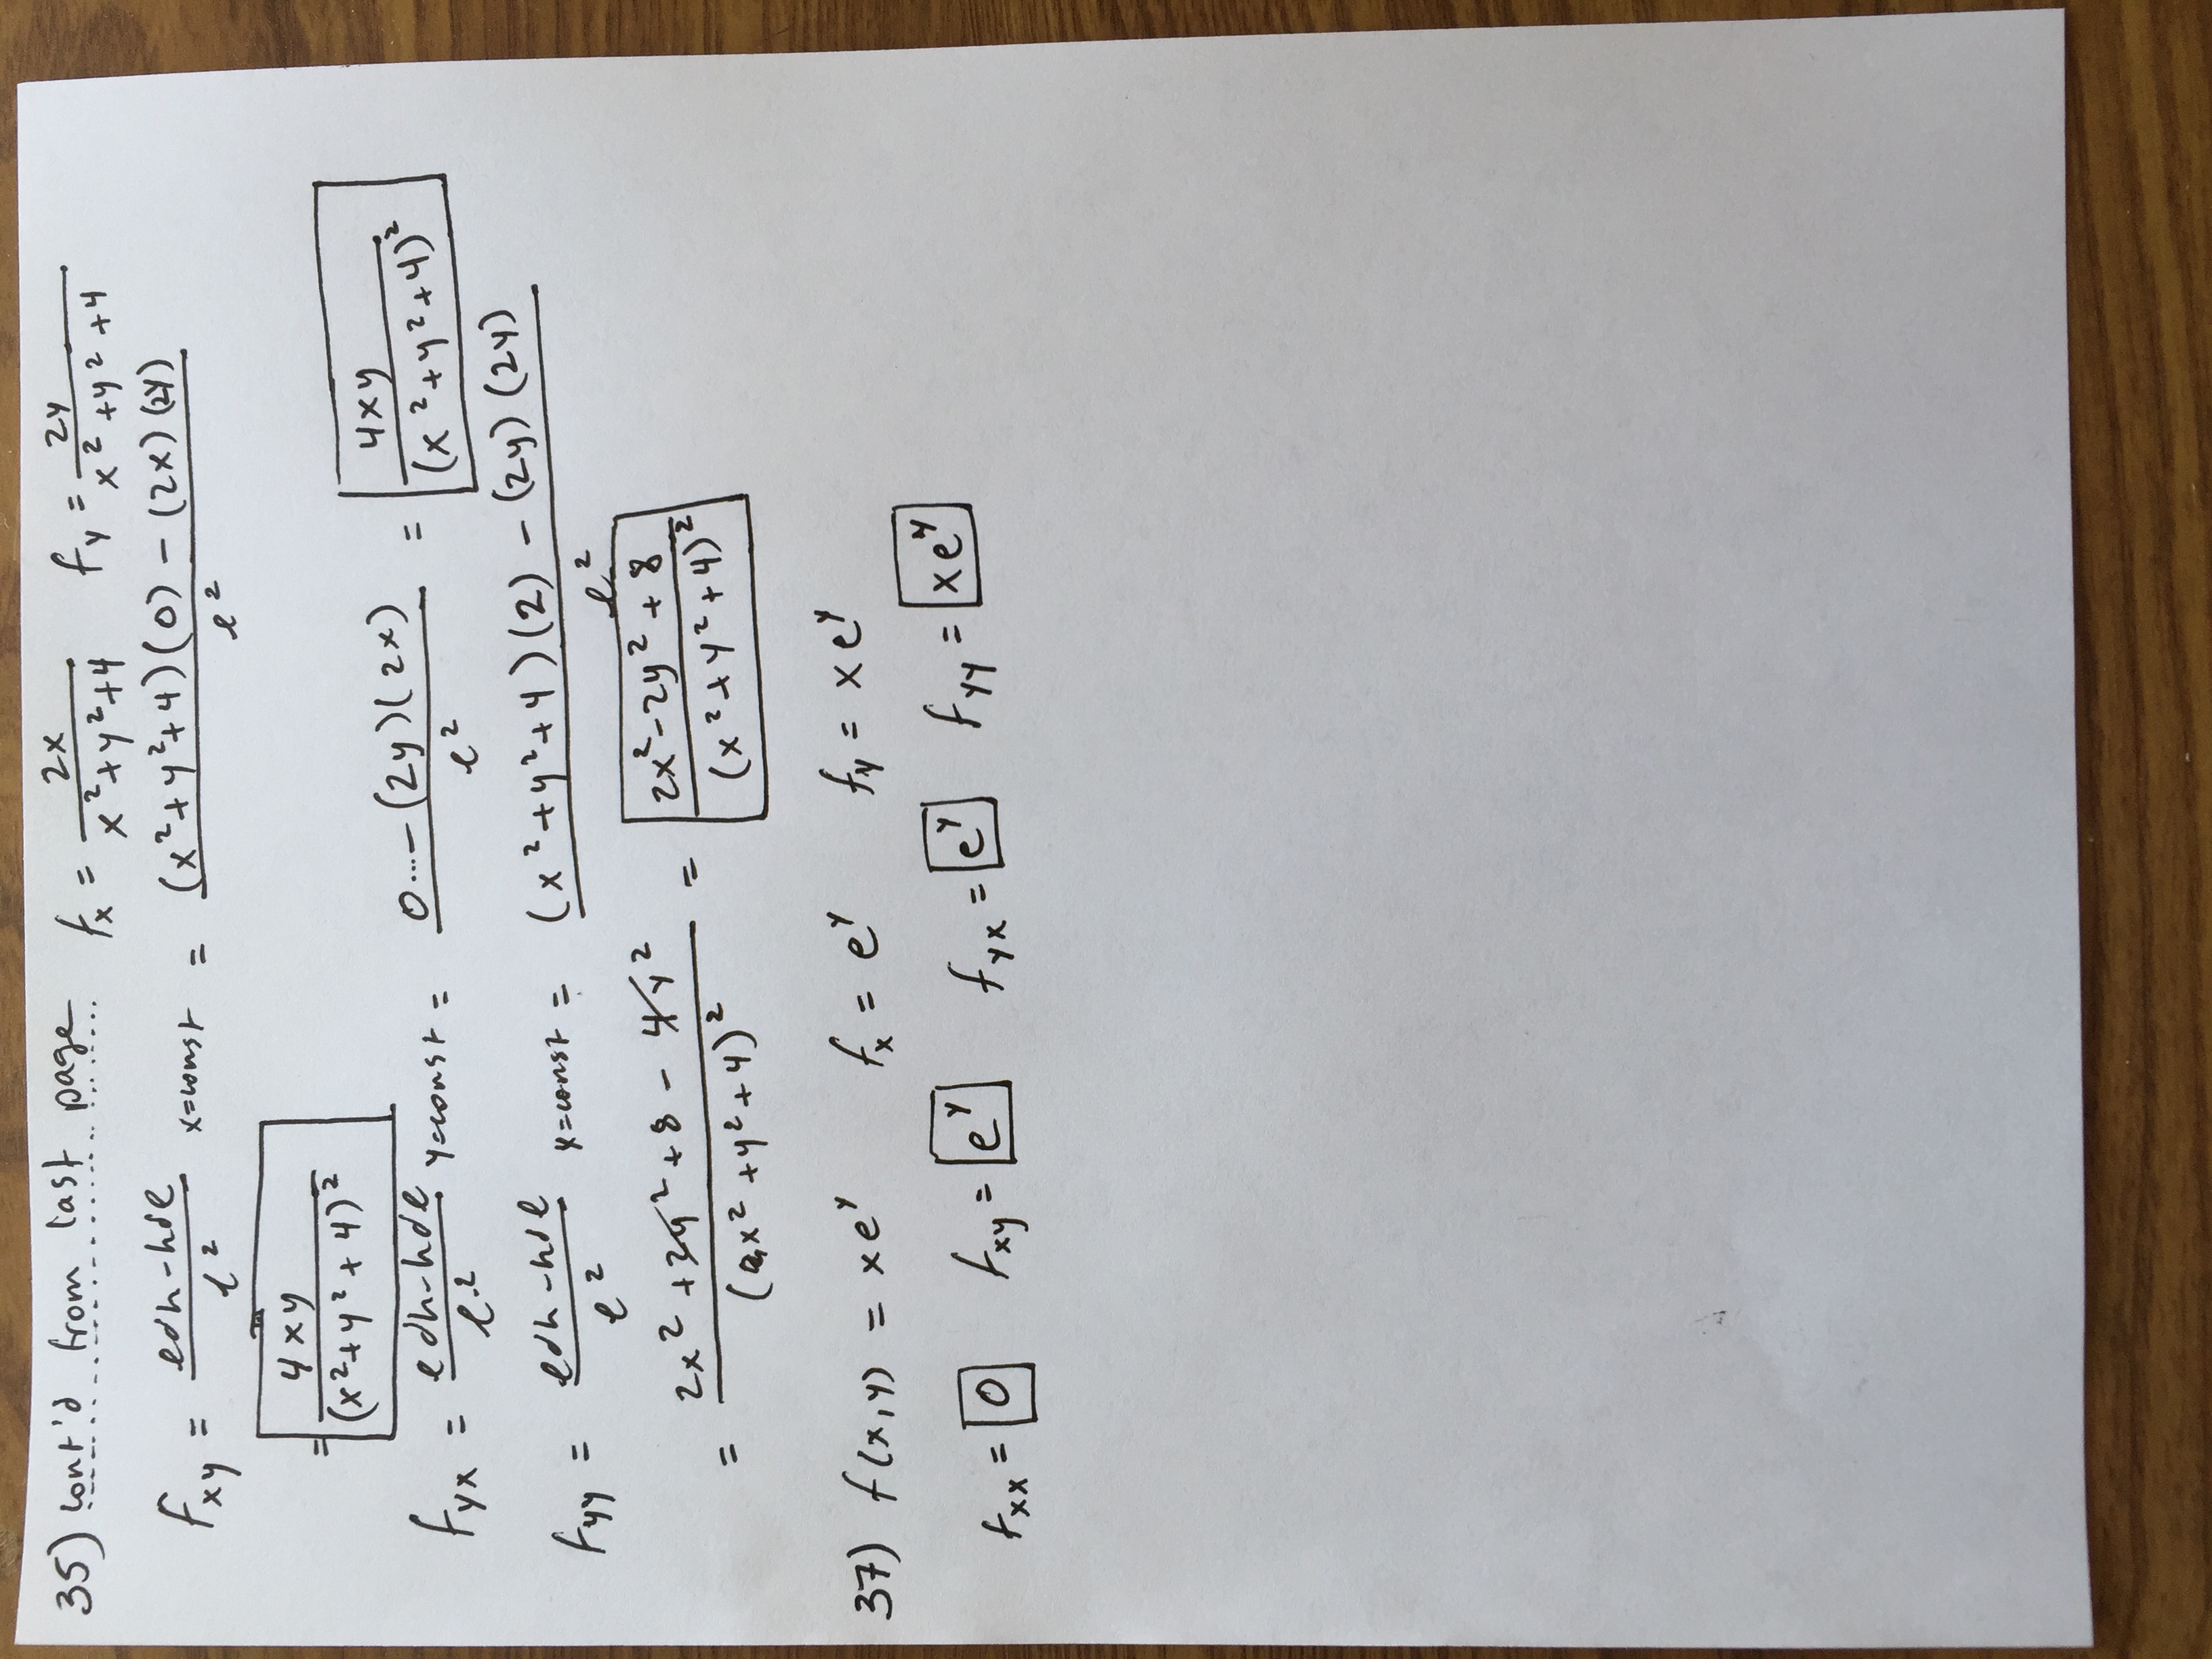 35) cont'd from last page fx = 2x / x²+y²+4 fy = 2y / x²+y²+4
Fxy = ldh-hdl / l² x=const = (x²+y²+4)(0) - (2x)(2y) / l²
= 4xy / (x²+y²+4)²
fyx = ldh-hdl / l² y=const = 0...-(2y)(2x) / l² = 4xy / (x²+y²+4)²
fyy = ldh-hdl / l² x=const = (x²+y²+4)(2) - (2y)(2y) / l²
= 2x²+2y²+8-4y² / (x²+y²+4)² = 2x²-2y²+8 / (x²+y²+4)²
37) f(x,y) = xe^y fx = e^y fy = xe^y
fxx = 0 fxy = e^y fyx = e^y fyy = xe^y